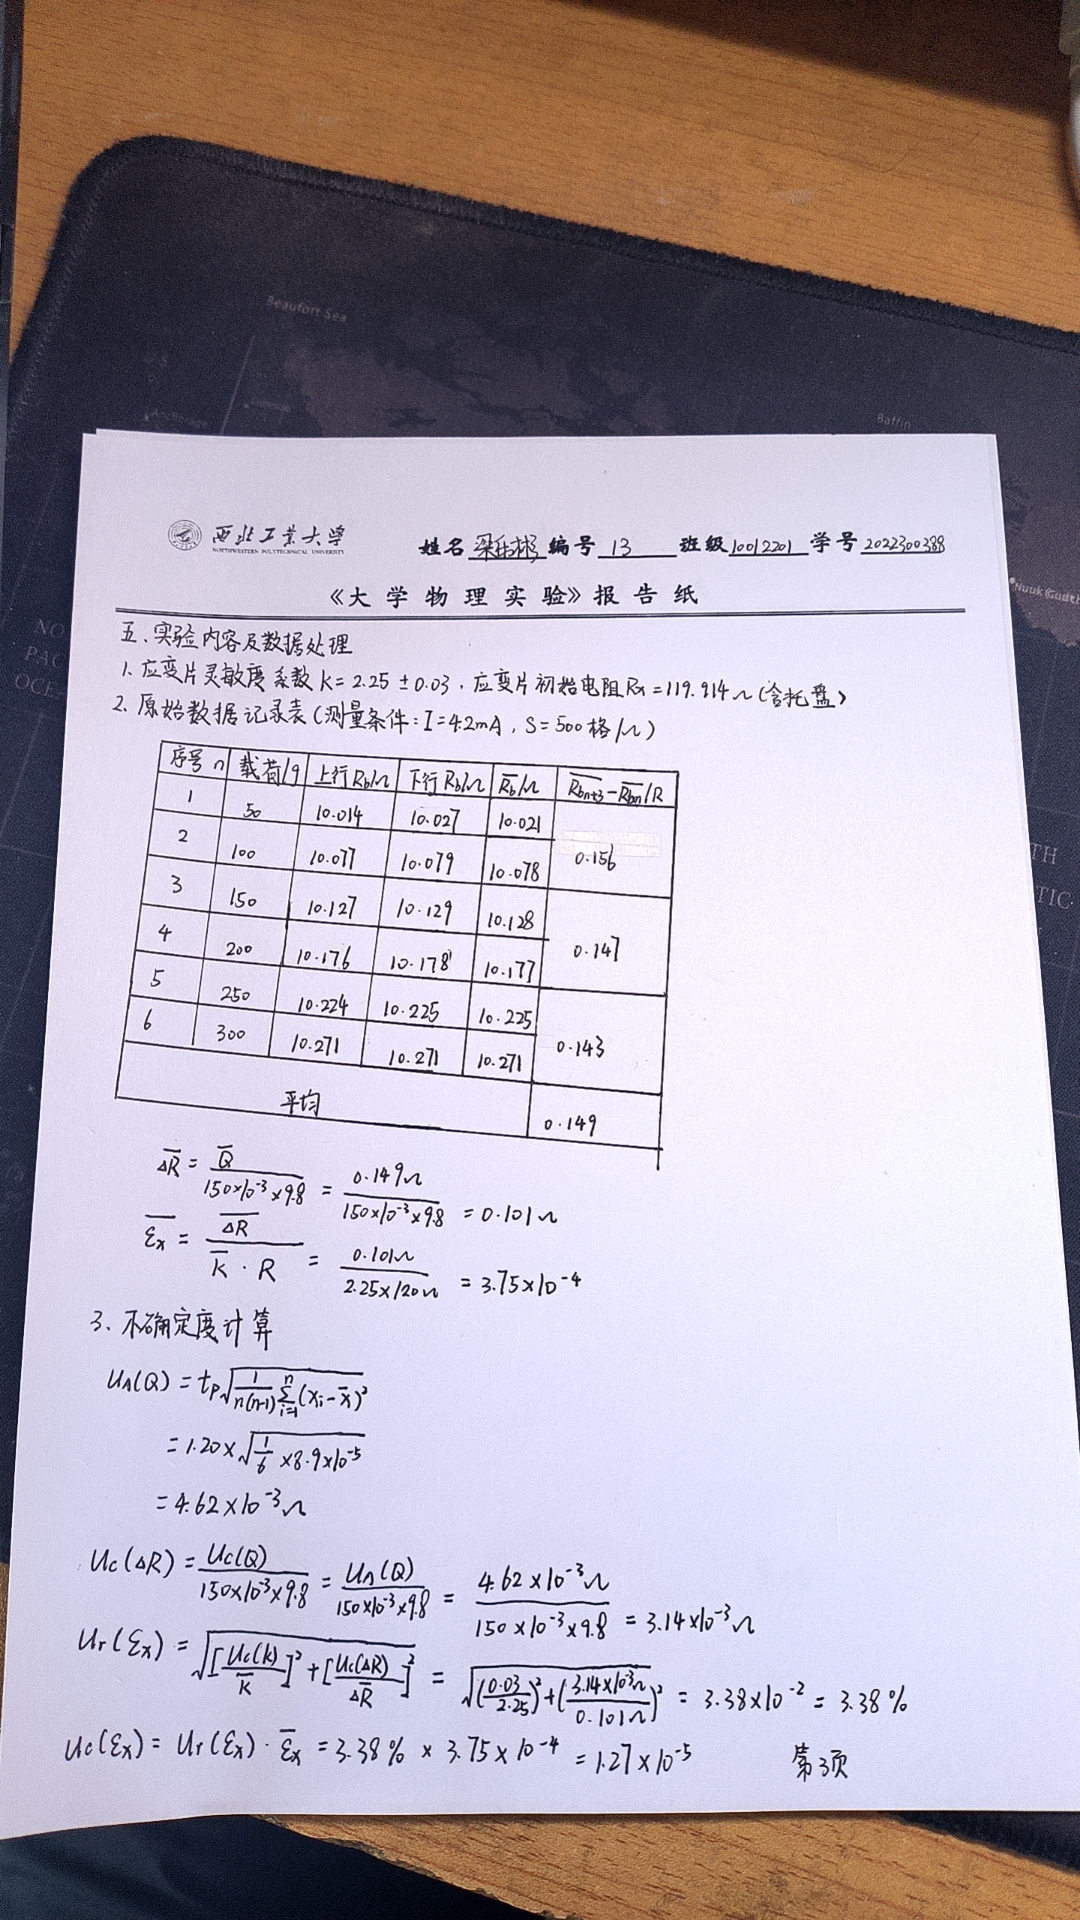 Beaufort Sea
Baffin
Nuuk (Godth
NO
PAC
OCE
TH
TIC
西北工业大学
NORTHWESTERN POLYTECHNICAL UNIVERSITY
姓名 编号 13 班级 10012201 学号 2022300388
《大学物理实验》报告纸
五、实验内容及数据处理
1、应变片灵敏度系数 K=2.25±0.03，应变片初始电阻Rx=119.914Ω(含托盘)
2、原始数据记录表(测量条件:I=4.2mA, S=500格/Ω)
序号 n 载荷/g 上行Rb/Ω 下行Rb/Ω R̅b/Ω R̅bn+3-R̅bn/R
1 50 10.014 10.027 10.021
2 100 10.077 10.079 10.078 0.156
3 150 10.127 10.129 10.128
4 200 10.176 10.178 10.177 0.147
5 250 10.224 10.225 10.225
6 300 10.271 10.271 10.271 0.143
平均 0.149
ΔR̅ = Q̅/(150×10⁻³×9.8) = 0.149Ω/(150×10⁻³×9.8) = 0.101Ω
ε̅x = ΔR̅/(K̅·R) = 0.101Ω/(2.25×120Ω) = 3.75×10⁻⁴
3、不确定度计算
UA(Q) = tp√(1/n(n-1) Σⁿᵢ₌₁(xi-x̅)²)
=1.20×√(1/6 ×8.9×10⁻⁵)
=4.62×10⁻³Ω
Uc(ΔR) = Uc(Q)/(150×10⁻³×9.8) = UA(Q)/(150×10⁻³×9.8) = 4.62×10⁻³Ω/(150×10⁻³×9.8) = 3.14×10⁻³Ω
Ur(εx) = √([Uc(k)/K̅]²+[Uc(ΔR)/ΔR̅]²) = √((0.03/2.25)²+(3.14×10⁻³Ω/0.101Ω)²) = 3.38×10⁻² = 3.38%
Uc(εx) = Ur(εx)·ε̅x = 3.38% × 3.75×10⁻⁴ = 1.27×10⁻⁵
第3页